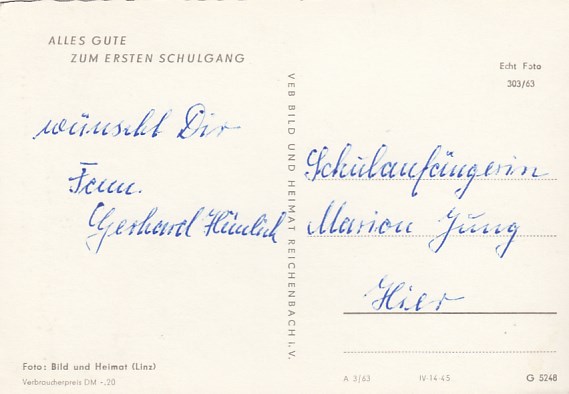 ALLES GUTE
ZUM ERSTEN SCHULGANG
Echt Foto
303/63
wünscht Dir
Fam.
Gerhard
VEB BILD UND HEIMAT REICHENBACH i. V.
Schulanfängerin
Marion Jung
Hier
Foto: Bild und Heimat (Linz)
Verbraucherpreis DM -,20
A 3/63 IV-14-45 G 5248